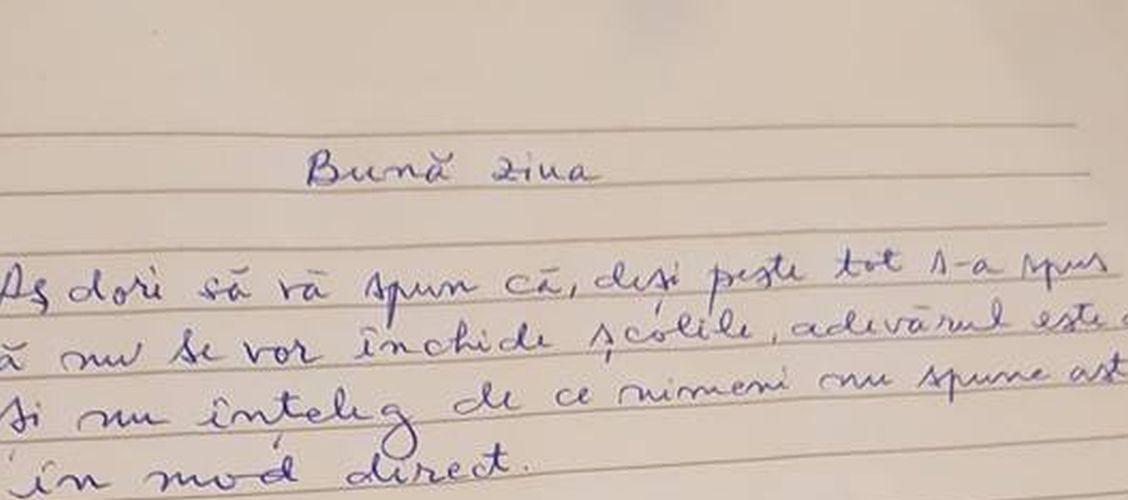 Bună ziua
Aș dori să vă spun că, deși peste tot s-a spus
ă nu se vor închide școlile, adevărul este
și nu înțeleg de ce nimeni nu spune ast
în mod direct.